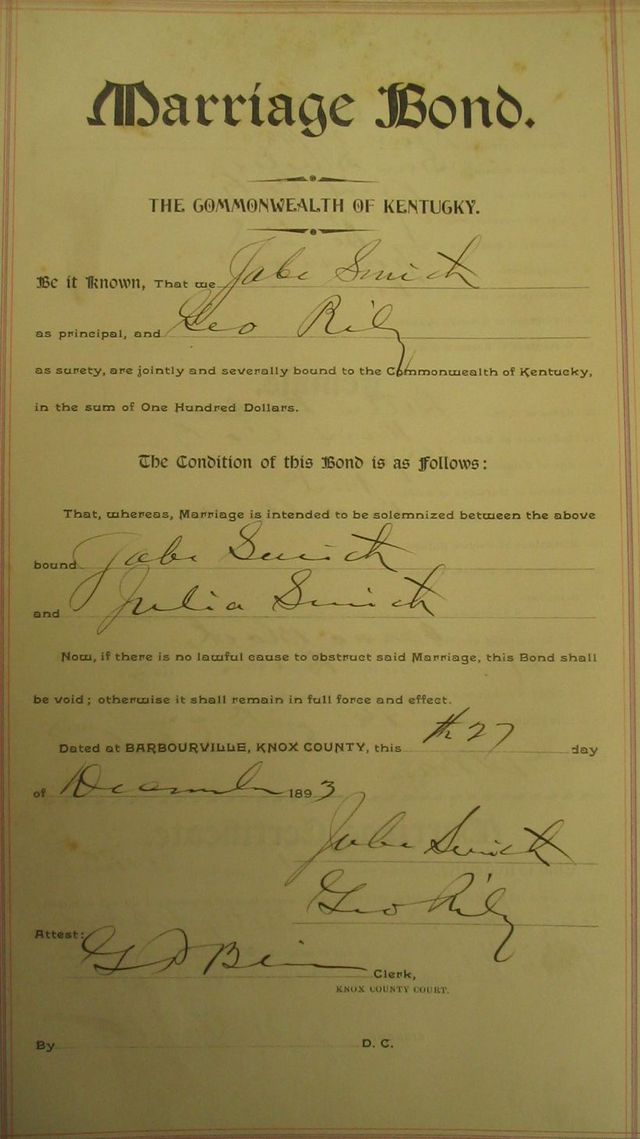 Marriage Bond.
THE COMMONWEALTH OF KENTUCKY.
Be it Known, That we Jabe Smith
as principal, and Geo Rily
as surety, are jointly and severally bound to the Commonwealth of Kentucky,
in the sum of One Hundred Dollars.
The Condition of this Bond is as Follows:
That, whereas, Marriage is intended to be solemnized between the above
bound Jabe Smith
and Julia Smith
Now, if there is no lawful cause to obstruct said Marriage, this Bond shall
be void; otherwise it shall remain in full force and effect.
Dated at BARBOURVILLE, KNOX COUNTY, this th 27 day
of December 1893
Jabe Smith
Geo Rily
Attest:
G D Clerk,
KNOX COUNTY COURT.
By D. C.